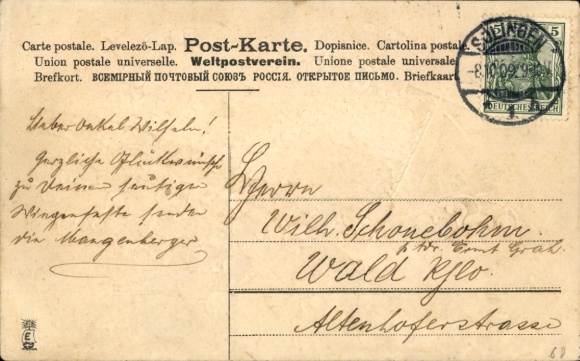 Carte postale. Levelező-Lap. Post-Karte. Dopisnice. Cartolina postale
Union postale universelle. Weltpostverein. Unione postale universale
Brefkort. ВСЕМІРНЫЙ ПОЧТОВЫЙ СОЮЗЪ РОССІЯ. ОТКРЫТОЕ ПИСЬМО. Briefkaart
SOLINGEN
5
5
-8.10.09.
DEUTSCHES REICH
Lieber Onkel Wilhelm!
Herzliche Glückwünsche
zu Deinem heutigen
Wiegenfeste senden
die Mangenberger
Herrn
Wilh. Schonebohm.
p. Adr. Ernst Grah.
Wald Rhld.
Altenhoferstrasse
E